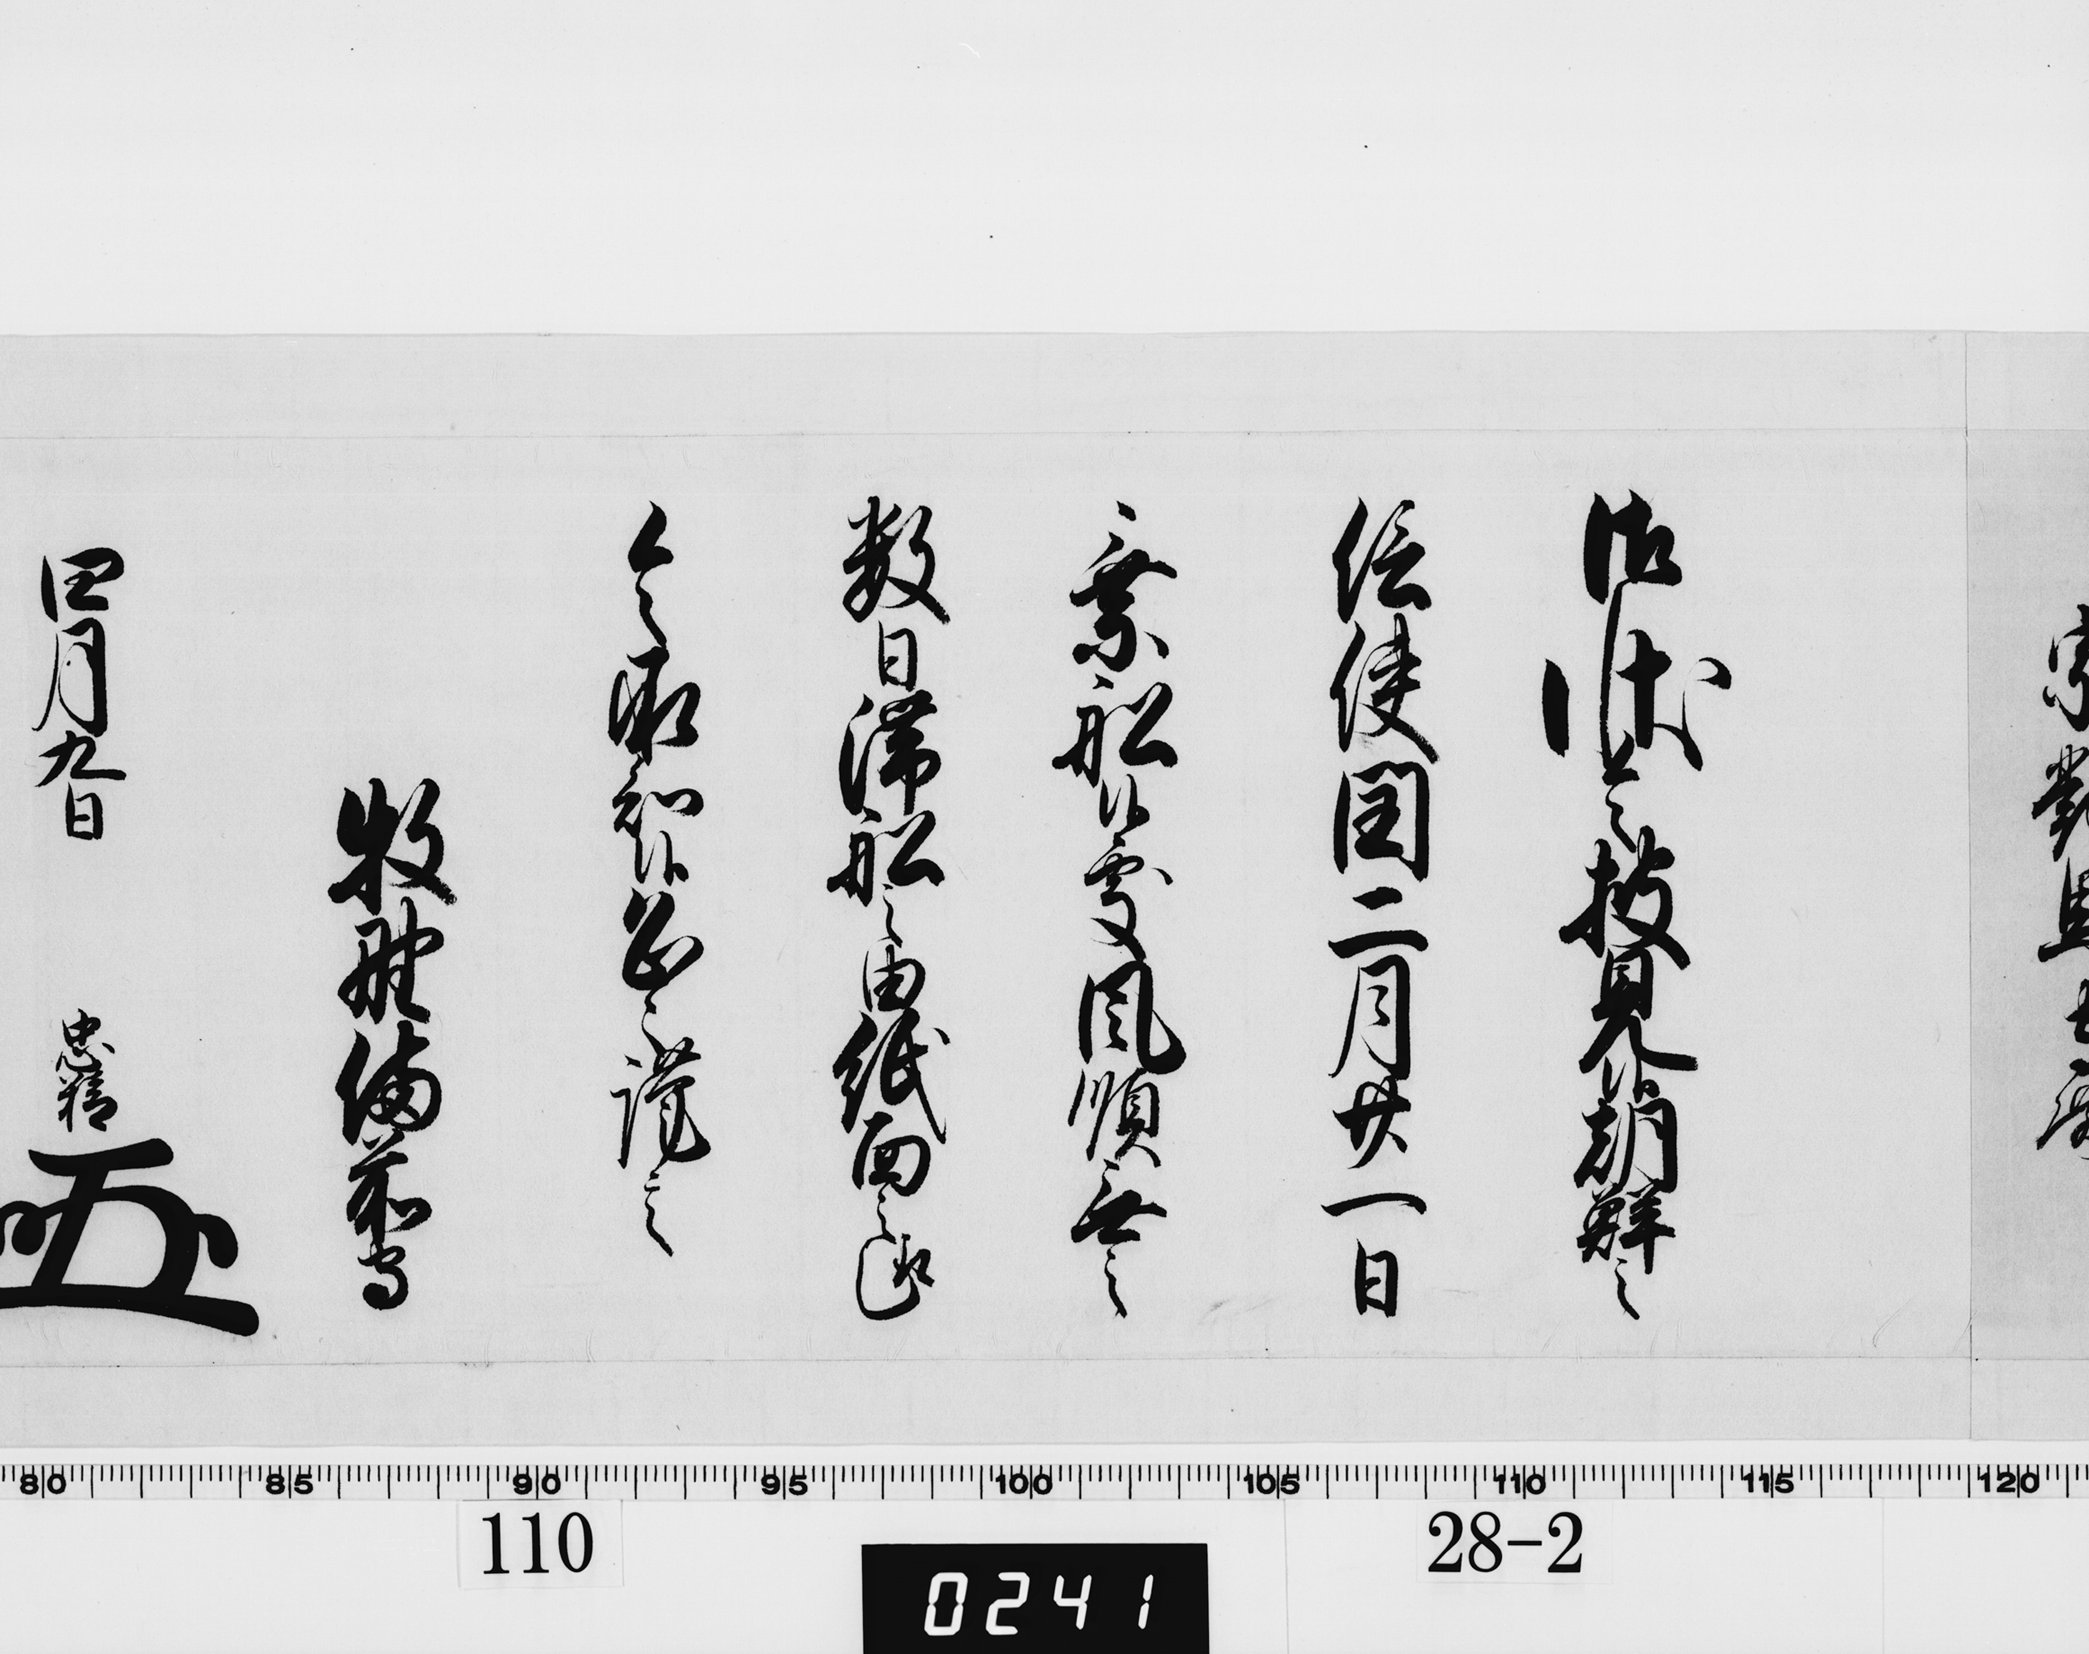 宗對馬守殿
御状令披見候朝鮮之
信使閏二月廿一日
乗船候處風順無之
数日滞船之由紙面之趣
令承知候恐々謹言
牧野備前守
四月九日 忠精
80 85 90 95 100 105 110 115 120
110 28-2
0241